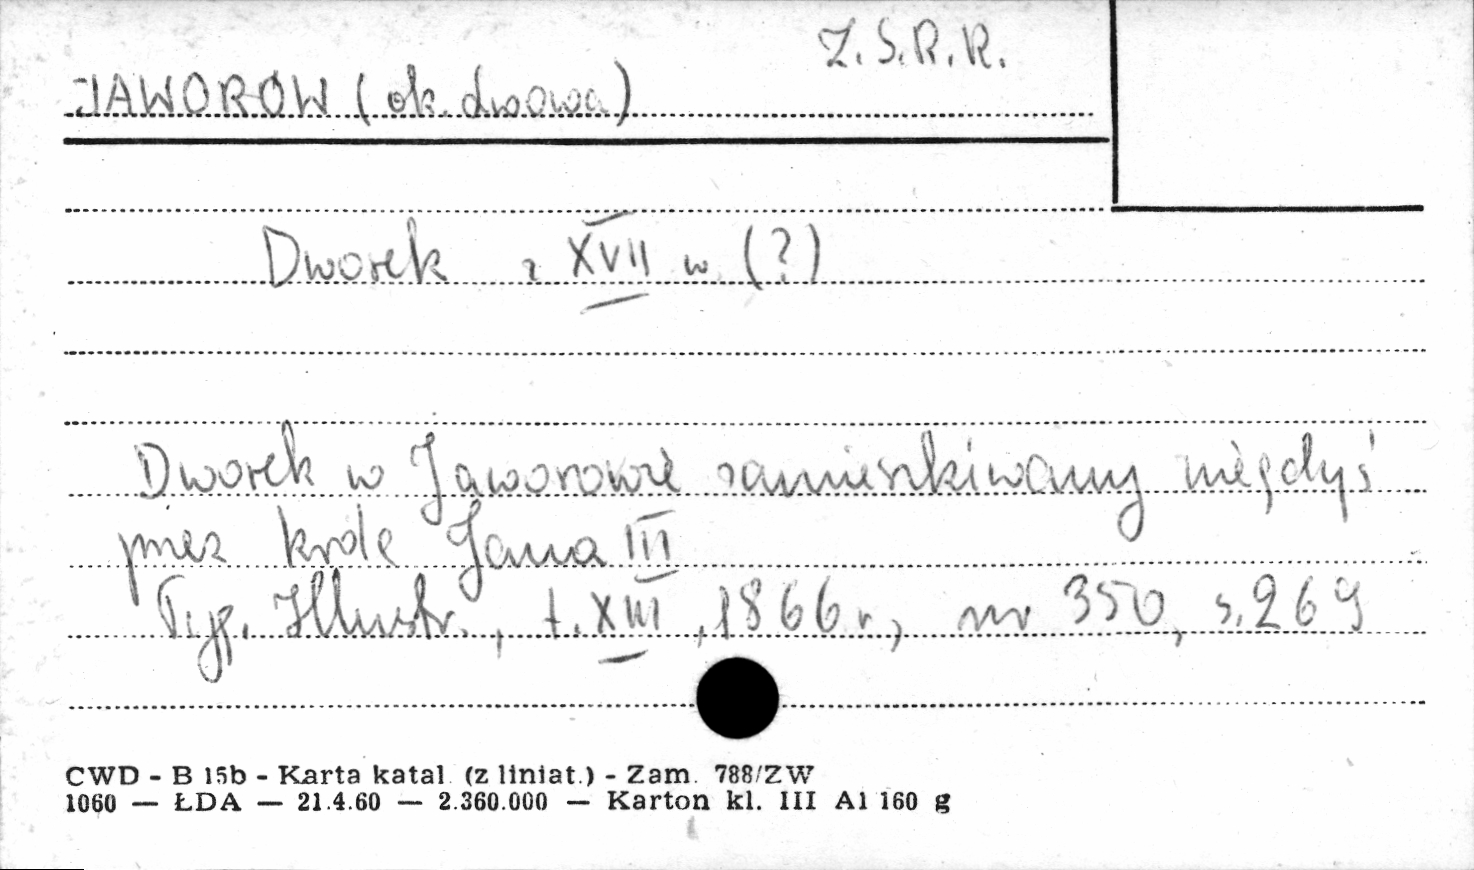 Z.S.R.R.
JAWORÓW (ok. dwowa)
Dworek z XVII w. (?)
Dworek w Jaworowie zamieszkiwany niegdyś
przez króla Jana III
Tyg. Illustr., t. XIII, 1866 r., nr 350, s. 269
CWD - B 15b - Karta katal. (z liniat.) - Zam. 788/ZW
1060 — ŁDA — 21.4.60 — 2.360.000 — Karton kl. III A1 160 g